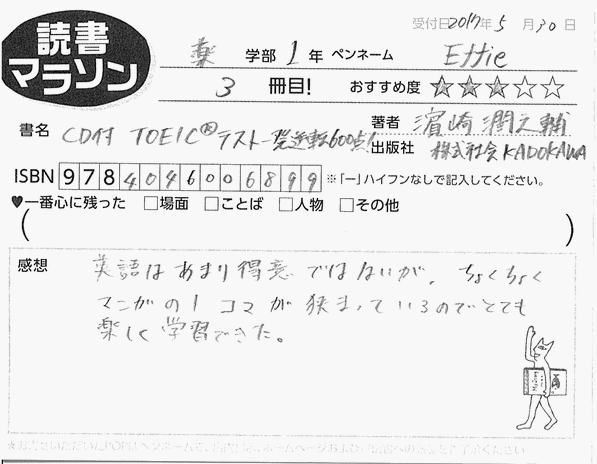 読書
マラソン
受付日2017年5月30日
薬 学部 1年 ペンネーム Effie
3 冊目! おすすめ度 ★★★☆☆
書名 CD付 TOEIC®テスト一発逆転600点!
著者 濵崎潤之輔
出版社 株式会社KADOKAWA
ISBN 9784046006899 ※「ー」ハイフンなしで記入してください。
♥一番心に残った □場面 □ことば □人物 □その他
( )
感想 英語はあまり得意ではないが、ちょくちょく
マンガの1コマが狭まっているのでとても
楽しく学習できた。